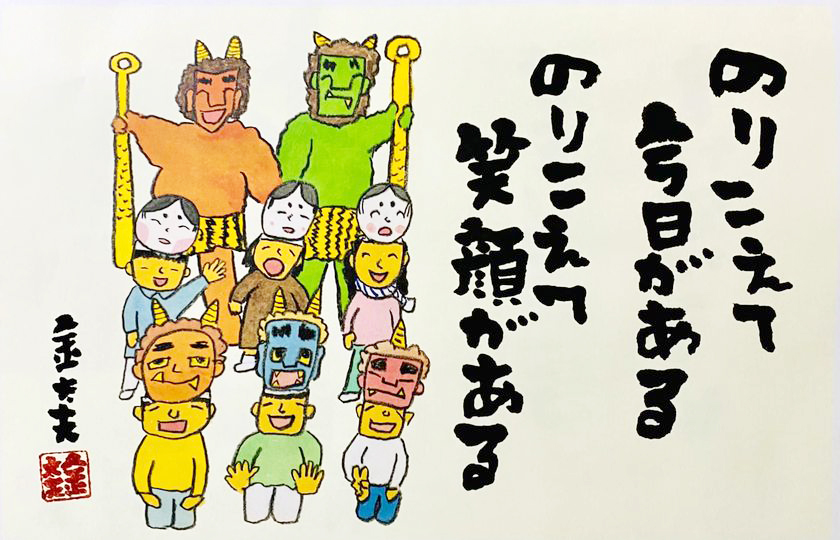 のりこえて
今日がある
のりこえて
笑顔がある